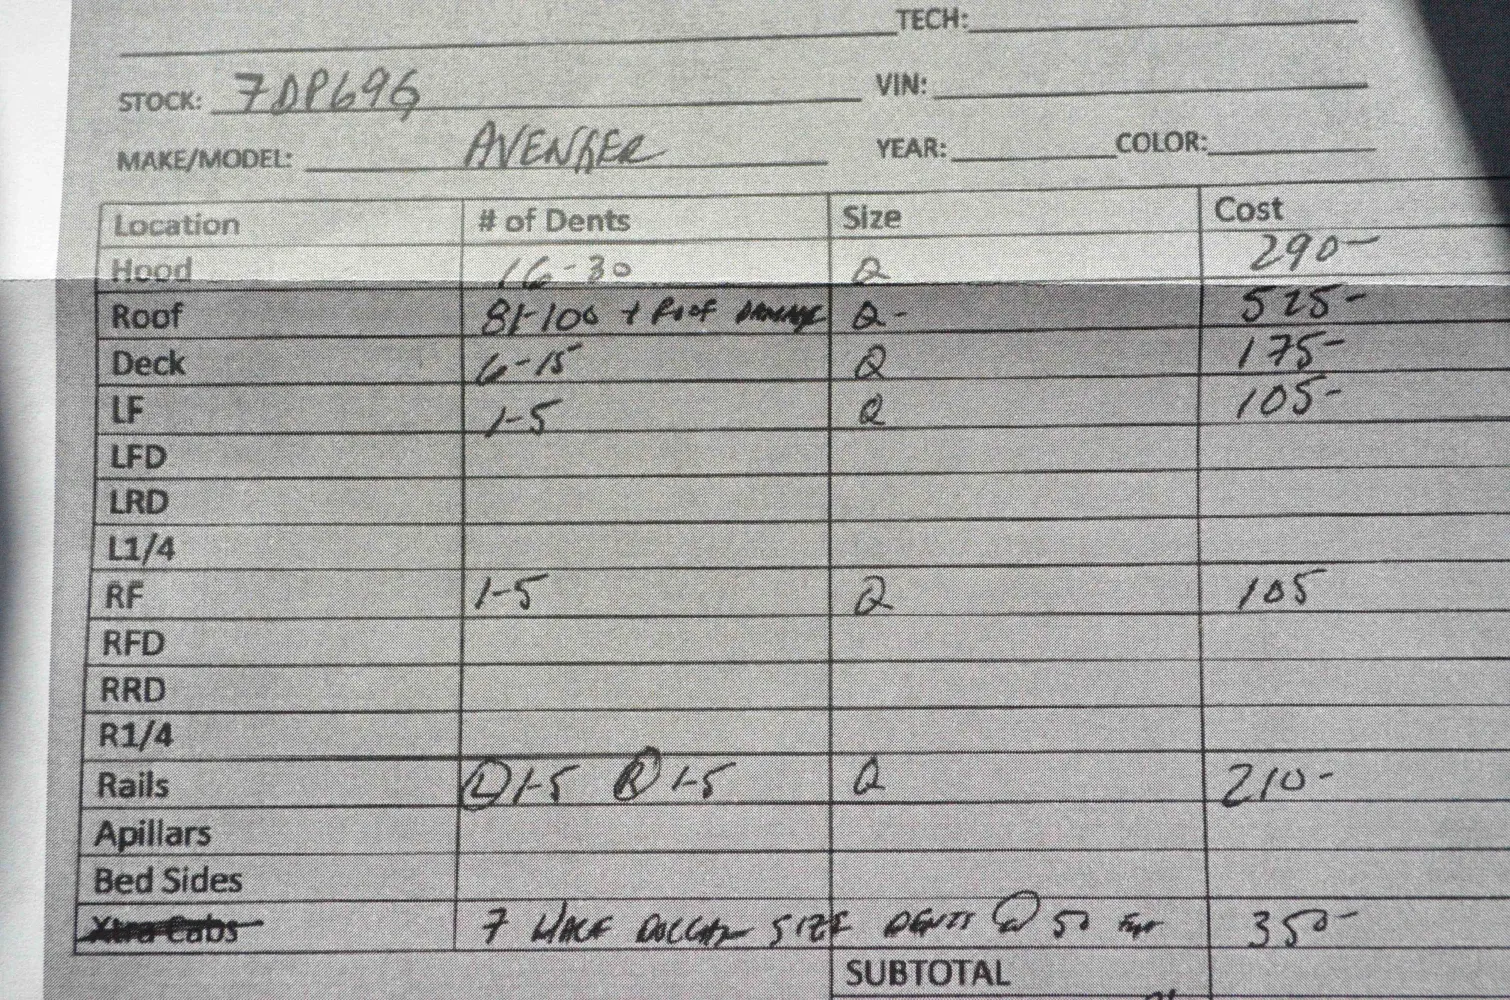 TECH:
STOCK: 7DP696 VIN:
MAKE/MODEL: AVENGER YEAR: COLOR:
Location # of Dents Size Cost
Hood 16-30 Q 290-
Roof 81-100 + Roof DAMAGE Q- 525-
Deck 6-15 Q 175-
LF 1-5 Q 105-
LFD
LRD
L1/4
RF 1-5 Q 105
RFD
RRD
R1/4
Rails L 1-5 R 1-5 Q 210-
Apillars
Bed Sides
Xtra Cabs 7 HALF DOLLAR SIZE DENTS @ 50 350-
SUBTOTAL